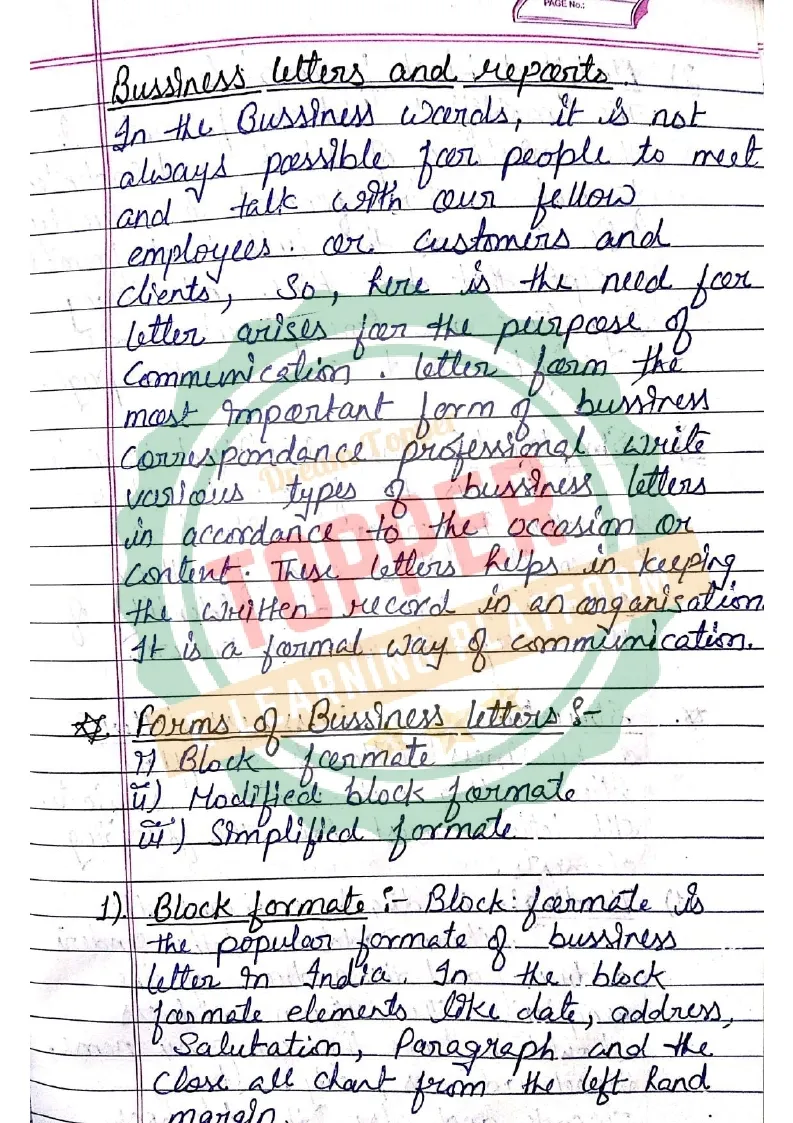 PAGE No.:
Bussiness letters and reports
In the Bussiness words, it is not
always possible for people to meet
and talk with our fellow
employees. or customers and
clients, So, here is the need for
letter arises for the purpose of
Communication. letter form the
most important form of bussiness
Correspondance professional write
various types of bussiness letters
in accordance to the occasion or
Content. These letters helps in keeping
the written record in an organisation.
It is a formal way of communication.
Forms of Bussiness letters :-
i) Block formate
ii) Modified block formate
iii) Simplified formate
1). Block formate :- Block formate is
the popular formate of bussiness
letter in India. In the block
formate elements like date, address,
Salutation, Paragraph and the
Close all chart from the left hand
margin.
Dream Topper
TOPPER
LEARNING PLATFORM